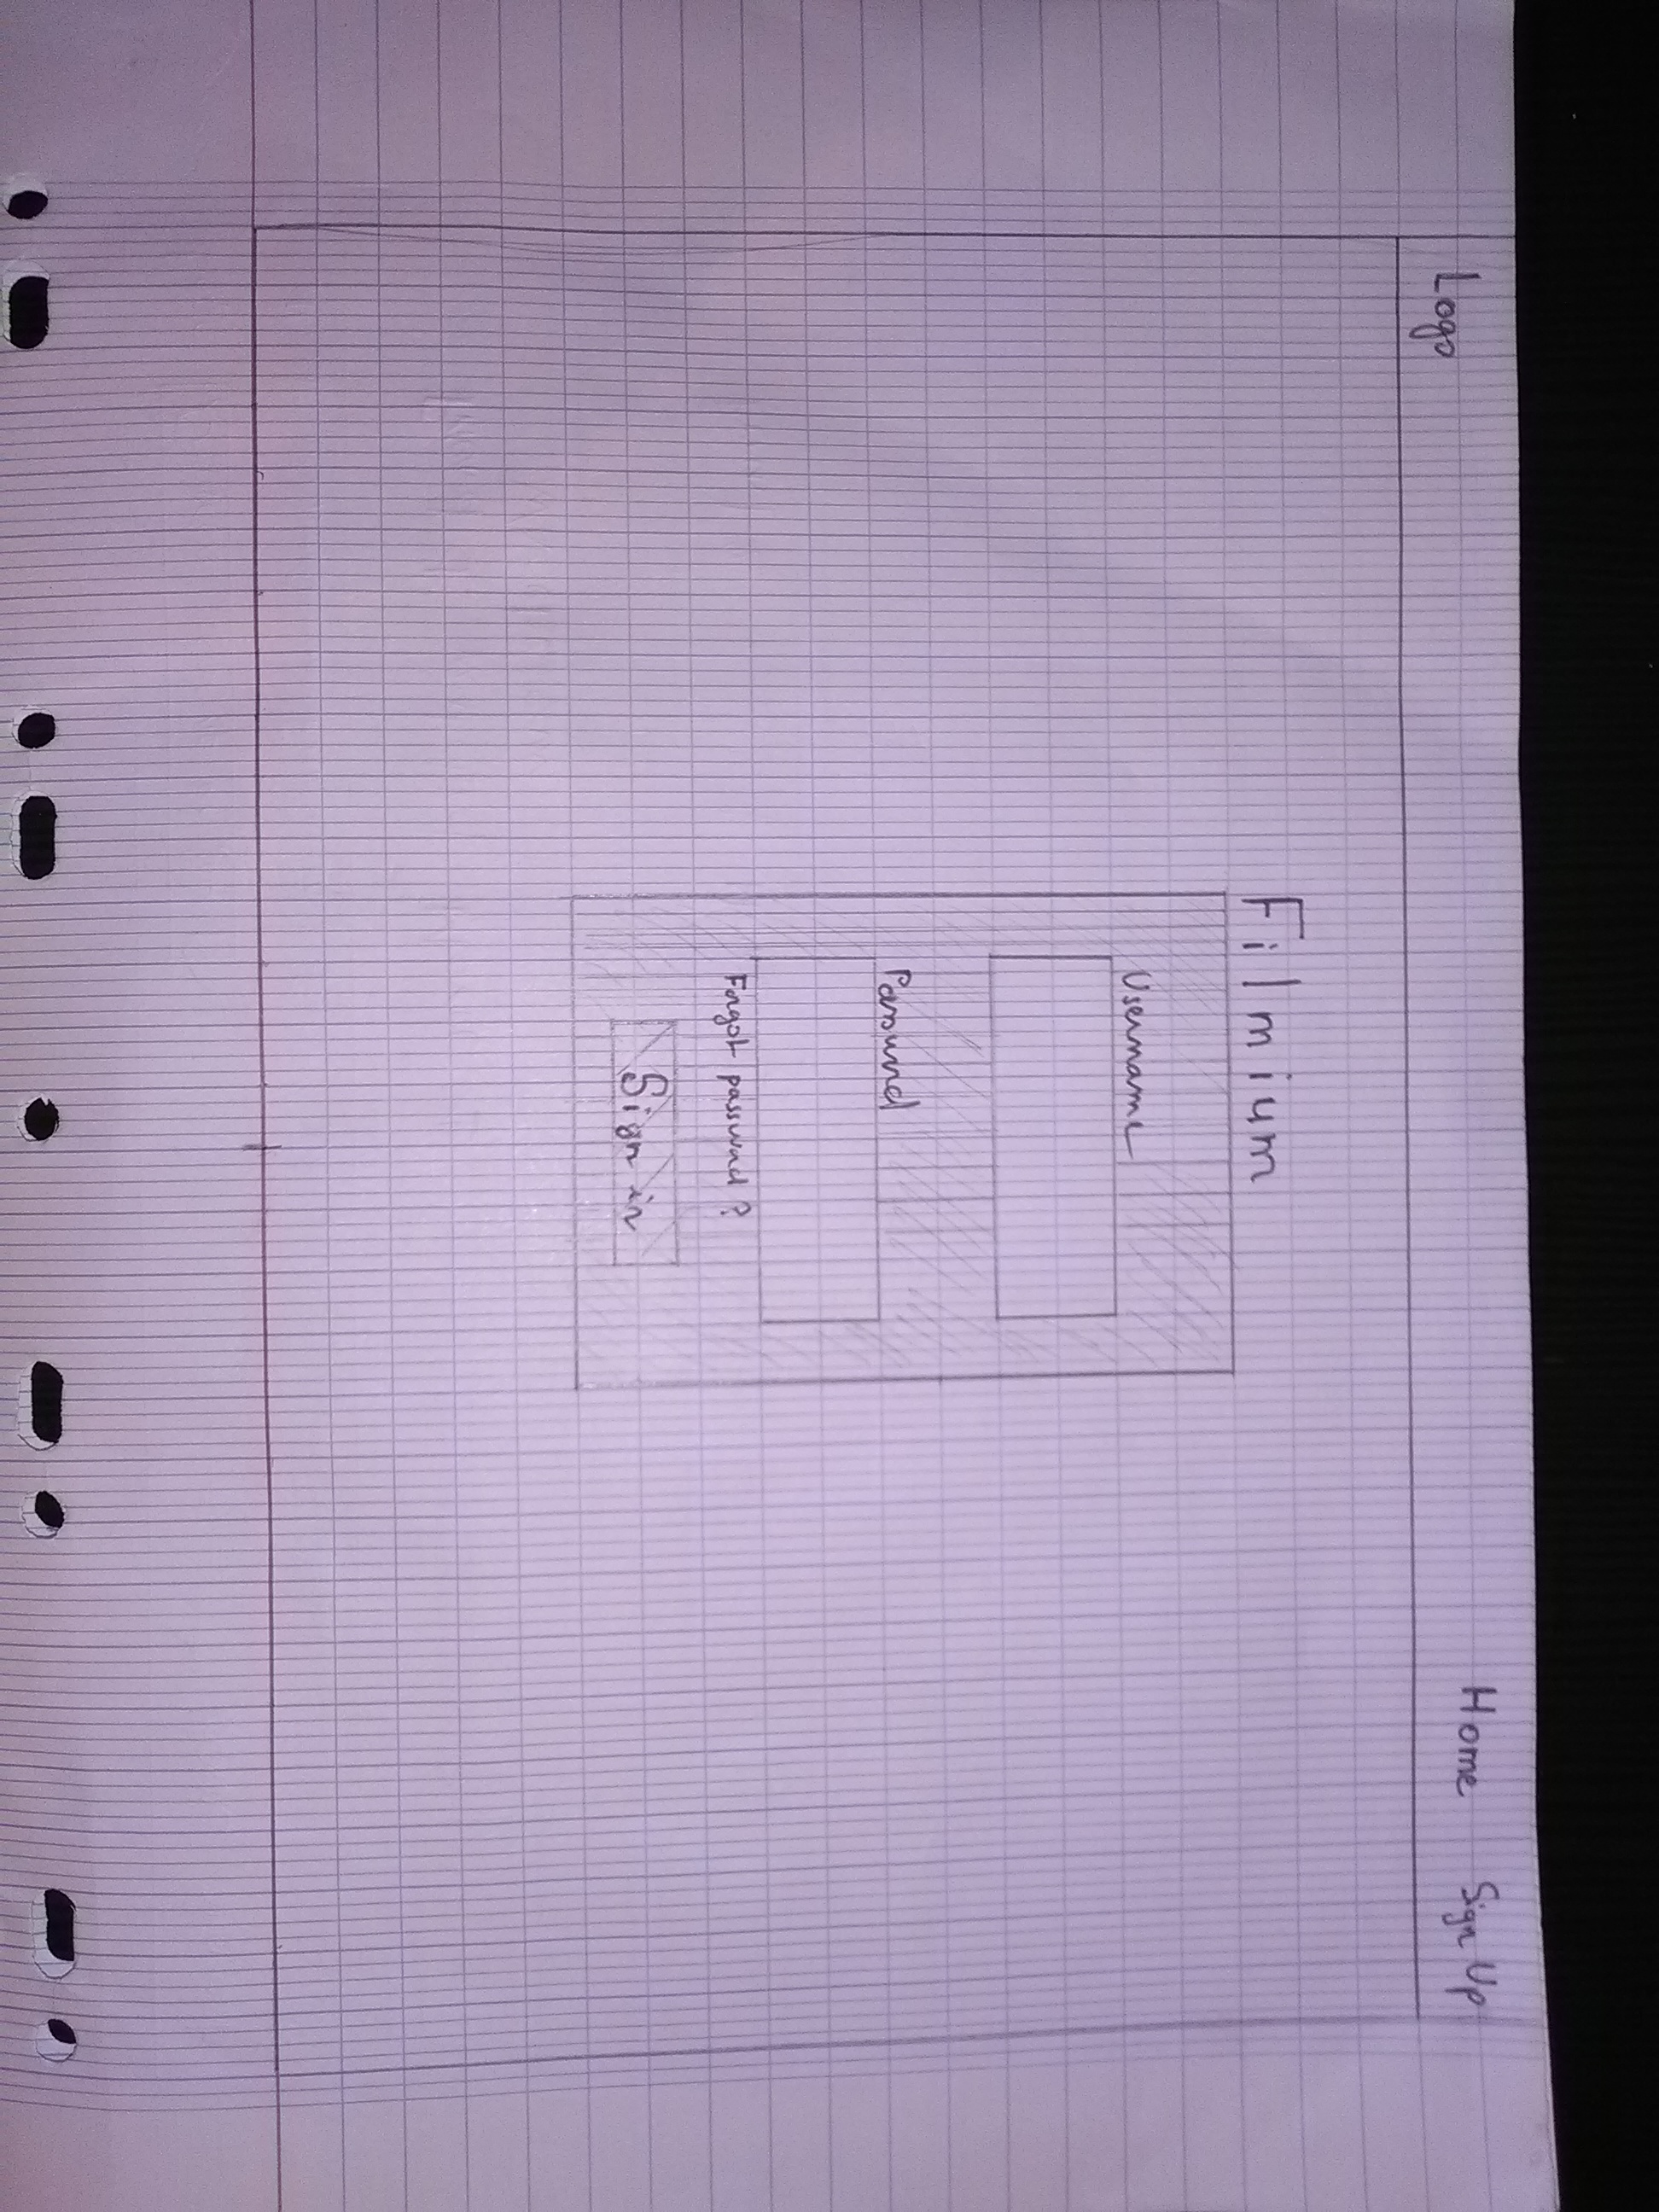 Logo Home Sign Up
Filmium
Username
Password
Forgot password?
Sign in